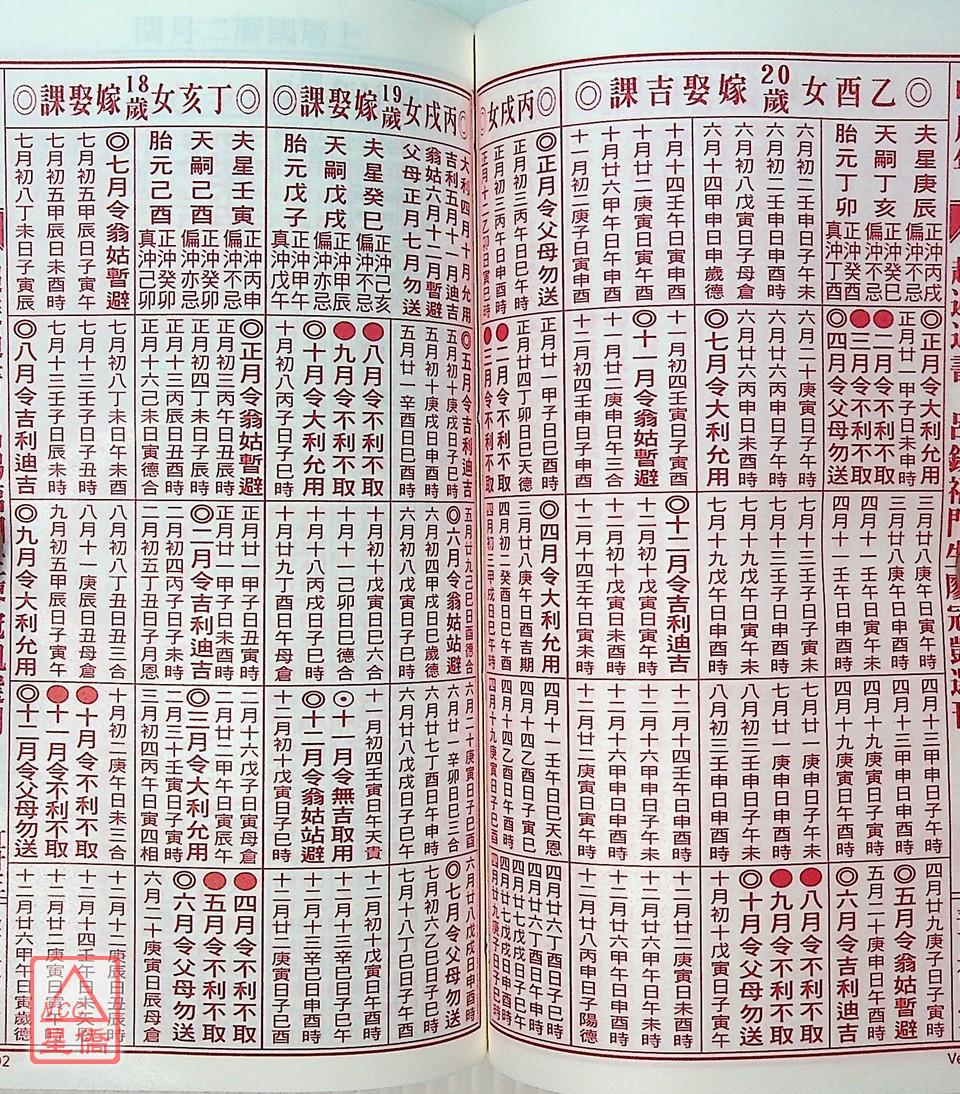 ◎乙酉女20歲嫁娶吉課◎
夫星庚辰
正沖丙戌
偏沖不忌
天嗣丁亥
胎元丁卯
真沖丁酉
六月初二壬申日子午未
六月初二壬申日申酉時
六月初八戊寅日子母倉
六月十四甲申日申歲德
十月十四壬午日寅申時
十一月廿二庚申日寅午未
十月廿六甲午日申酉時
十一月初二庚子日寅申時
◎正月令大利允用
正月廿一甲子日未申時
●二月令不利不取
●三月令不利不取
◎四月令父母勿送
六月二十庚寅日子午時
六月廿六丙申日午未時
六月廿六丙申日申酉時
◎七月令大利允用
十一月初四壬寅日子寅申
◎十一月令翁姑暫避
十一月廿二庚申日午三合
十二月初四壬申日子申時
三月廿八庚午日申酉時
四月十一壬午日寅午未
四月十一壬午日申酉時
七月十三壬子日寅未申
七月十九戊午日寅午時
七月十九戊午日申酉時
◎十二月令吉利迪吉
十二月初十戊寅日子午時
十二月初十戊寅日未申時
十二月十四壬午日寅未時
四月十三甲申日子午未
四月十三甲申日申酉時
四月十九庚寅日子寅時
四月十九庚寅日午未時
七月廿一庚申日子午未
七月廿一庚申日申酉時
八月初三壬申日子午未
八月初三壬申日申酉時
十二月十四壬午日申酉時
十二月十六甲申日子午未
十二月十六甲申日申酉時
十二月廿二庚寅日寅午時
四月廿九庚子日子寅時
◎五月令翁姑暫避
五月二十庚申日子酉時
◎六月令吉利迪吉
●八月令不利不取
●九月令不利不取
◎十月令父母勿送
十月初十戊寅日子寅午
十二月廿二庚寅日未申時
十二月廿六甲午日午未時
十二月廿六甲午日申酉時
十二月廿八丙申日子陽德
◎丙戌女
◎正月令父母勿送
正月初三丙午日子巳時
正月初三丙午日午酉時
正月十二乙卯日寅巳時
正月廿一甲子日子巳時
正月廿四丁卯日巳天德
●二月令不利不取
●三月令不利不取
◎四月令大利允用
三月廿八庚午日酉吉期
四月初二癸酉日巳午酉
四月初三甲戌日巳午時
四月十一壬午日巳天恩
四月十四乙酉日子寅巳
四月十四乙酉日午酉時
四月十九庚寅日子巳酉
四月廿六丁酉日子巳時
四月廿六丁酉日午申時
四月廿七戊戌日子巳午
四月廿七戊戌日申酉時
四月廿九庚子日子巳時
丙戌女19歲嫁娶課◎
大利四月十月允用
吉利五月十一月迪吉
翁姑六月十二月暫避
父母正月七月勿送
夫星癸巳
正沖己亥
偏沖不忌
天嗣戊戌
正沖甲辰
偏沖亦忌
胎元戊子
正沖甲午
真沖戊午
◎五月令吉利迪吉
五月初十庚戌日子巳時
五月初十庚戌日申酉時
五月廿一辛酉日巳酉時
●八月令不利不取
●九月令不利不取
◎十月令大利允用
十月初八丙子日子巳時
五月廿九己巳日酉德合
◎六月令翁姑站避
六月初四甲戌日巳歲德
六月初四甲戌日午酉時
十月初十戊寅日巳六合
十月十一己卯日巳德合
十月十八丙戌日子巳時
十月廿九丁酉日午母倉
六月二十庚寅日子巳酉
六月廿一辛卯日巳三合
六月廿七丁酉日午申時
六月廿八戊戌日子巳午
十一月初四壬寅日午天貴
⊙十一月令無吉取用
◎十二月令翁姑站避
十二月初十戊寅日子巳時
六月廿八戊戌日申酉時
◎七月令父母勿送
七月初六乙巳日子巳時
七月十八丁巳日巳午酉
十二月初十戊寅日午酉時
十二月十三辛巳日子巳午
十二月十三辛巳日申酉時
十二月廿二庚寅日子巳酉
◎丁亥女18歲嫁娶課◎
夫星壬寅
正沖丙申
偏沖不忌
天嗣己酉
正沖癸卯
偏沖亦忌
胎元己酉
正沖癸卯
真沖己卯
◎七月令翁姑暫避
七月初五甲辰日子寅午
七月初五甲辰日未酉時
七月初八丁未日子寅辰
◎正月令翁姑暫避
正月初三丙午日丑酉時
正月初四丁未日子辰時
正月十三丙辰日丑酉時
正月十六己未日寅德合
七月初八丁未日午未酉
七月十三壬子日子丑時
七月十三壬子日辰未時
◎八月令吉利迪吉
正月廿一甲子日丑寅時
正月廿一甲子日未酉時
◎二月令吉利迪吉
二月初四丙子日子未時
二月初五丁丑日子月恩
八月初八丁丑日丑三合
八月十一庚辰日丑母倉
九月初五甲辰日子寅午
◎九月令大利允用
二月十六戊子日寅母倉
二月廿二甲午日寅辰午
◎三月令大利允用
二月三十壬寅日子寅時
三月初四丙午日寅四相
十月初二庚午日未三合
●十月令不利不取
●十一月令不利不取
◎十二月令父母勿送
●四月令不利不取
●五月令不利不取
◎六月令父母勿送
六月二十庚寅日辰母倉
十二月十二庚辰日丑辰時
十二月十四壬午日未天恩
十二月廿二庚寅日寅午時
十二月廿六甲午日寅歲德
ACC
星僑